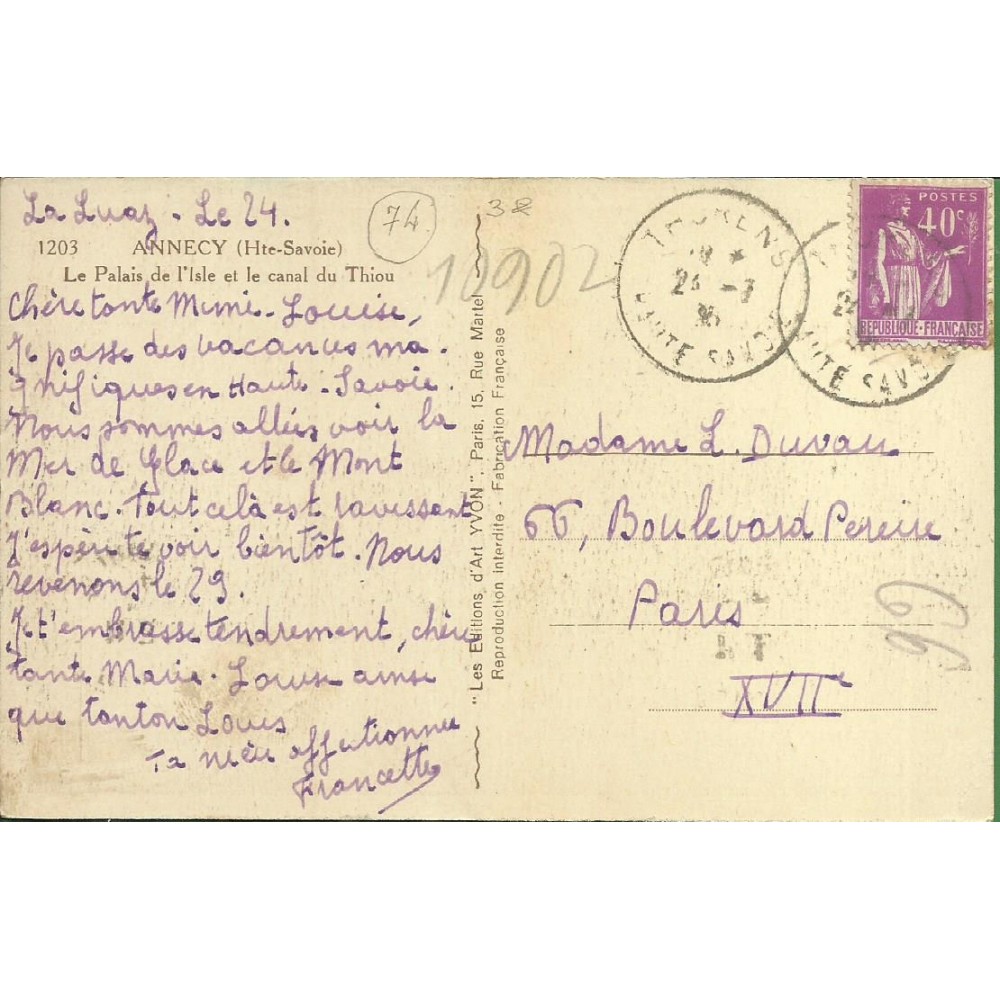 La Luaz - Le 24.
74
3€
1203 ANNECY (Hte-Savoie)
Le Palais de l'Isle et le canal du Thiou
10902
Chère tante Mimi-Louise,
Je passe des vacances ma-
gnifiques en Haute-Savoie.
Nous sommes allées voir la
Mer de Glace et le Mont
Blanc. Tout celà est ravissant
J'espère te voir bientôt. Nous
revenons le 29.
Je t'embrasse tendrement, chère
tante Marie-Louise ainsi
que tonton Louis
Ta nièce affectionnée
Francette
"Les Editions d'Art YVON". Paris, 15, Rue Martel
Reproduction interdite - Fabrication Française
THORENS
24 -7
HAUTE SAVOIE
HAUTE SAVOIE
POSTES
40c
REPUBLIQUE-FRANÇAISE
Madame L. Duvau
66, Boulevard Pereire
Paris
XVIIe